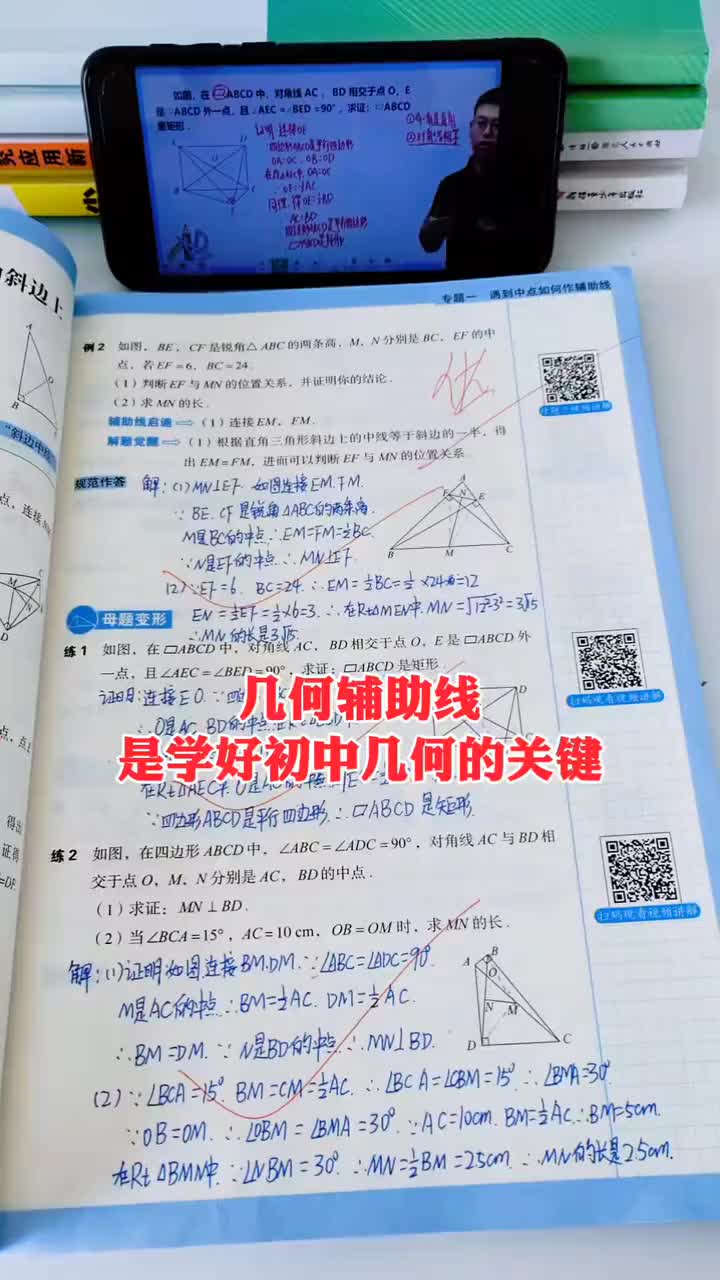 如图，在▱ABCD中，对角线AC，BD相交于点O，E
是▱ABCD外一点，且∠AEC=∠BED=90°，求证：▱ABCD
是矩形.
证明：连接OE
OA=OC OB=OD
应用新
小
斜边上
专题一 遇到中点如何作辅助线
例2 如图，BE，CF是锐角△ABC的两条高，M，N分别是BC，EF的中
点，若EF=6，BC=24.
(1)判断EF与MN的位置关系，并证明你的结论.
(2)求MN的长.
优
辅助线启迪 ⇒ (1)连接EM，FM.
解题觉醒 ⇒ (1)根据直角三角形斜边上的中线等于斜边的一半，得
出EM=FM，进而可以判断EF与MN的位置关系.
"斜边中线
点，连接
规范作答 解：(1)MN⊥EF. 如图连接EM.FM.
∵BE.CF是锐角△ABC的两条高.
M是BC的中点∴EM=FM=½BC.
∵N是EF的中点∴MN⊥EF.
(2)∵EF=6. BC=24.∴EM=½BC=½×24=12
EN=½EF=½×6=3.∴在Rt△MEN中.MN=√12²-3²=3√15
∴MN的长是3√15.
A
F
N
E
B
M
C
母题变形
练1 如图，在▱ABCD中，对角线AC，BD相交于点O，E是▱ABCD外
一点，且∠AEC=∠BED=90°，求证：▱ABCD是矩形.
证明：连接EO.∵四
扫码观看视频讲解
D
几何辅助线
是学好初中几何的关键
∴O是AC.BD的中点
在Rt△AEC中.O是AC的中点
∵四边形ABCD是平行四边形.∴▱ABCD是矩形.
练2 如图，在四边形ABCD中，∠ABC=∠ADC=90°，对角线AC与BD相
交于点O，M，N分别是AC，BD的中点.
(1)求证：MN⊥BD.
(2)当∠BCA=15°，AC=10 cm，OB=OM时，求MN的长.
扫码观看视频讲解
解：(1)证明如图连接BM.DM.∵∠ABC=∠ADC=90°.
M是AC的中点∴BM=½AC. DM=½AC.
∴BM=DM.∵N是BD的中点∴MN⊥BD.
A
B
O
N
M
D
C
(2)∵∠BCA=15° BM=CM=½AC.∴∠BCA=∠CBM=15°∴∠BMA=30°
∵OB=OM.∴∠OBM=∠BMA=30°∵AC=10cm.BM=½AC∴BM=5cm.
在Rt△BMN中.∵∠NBM=30°∴MN=½BM=2.5cm.∴MN的长是2.5cm.